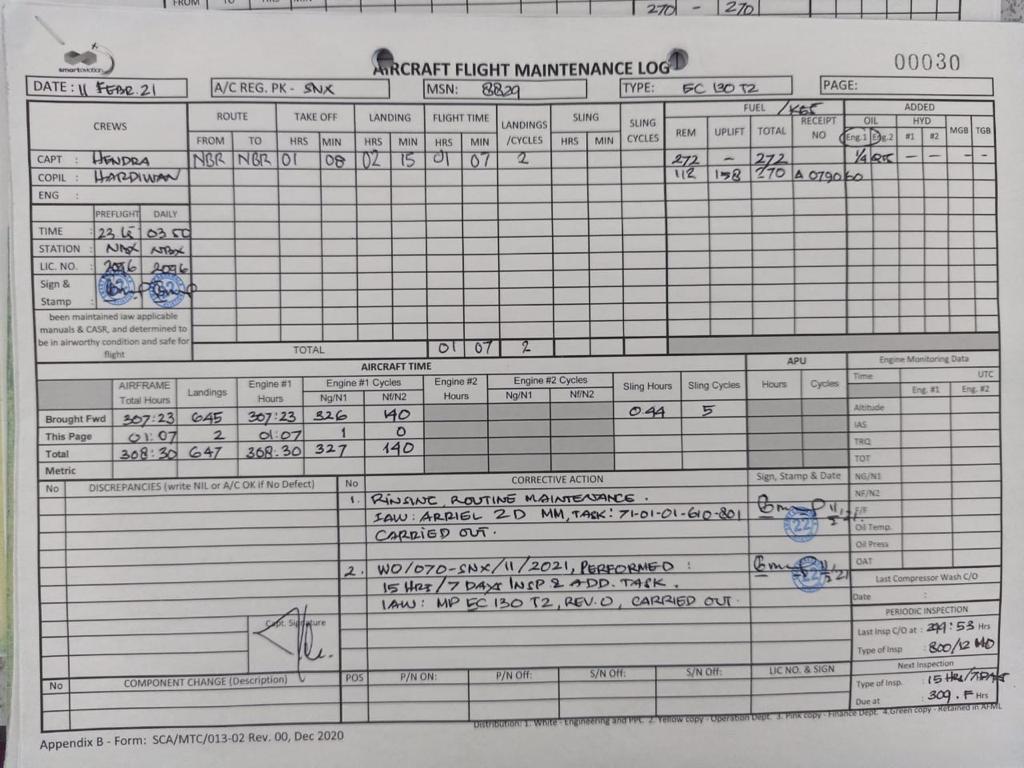 FROM TO HRS MIN
270 - 270
smartaviation
AIRCRAFT FLIGHT MAINTENANCE LOG
00030
DATE : 11 FEBR. 21 A/C REG. PK - SNX MSN: 8829 TYPE: EC 130 T2 PAGE:
CREWS ROUTE TAKE OFF LANDING FLIGHT TIME LANDINGS /CYCLES SLING SLING CYCLES FUEL /KG ADDED
REM UPLIFT TOTAL RECEIPT NO OIL HYD MGB TGB
FROM TO HRS MIN HRS MIN HRS MIN HRS MIN Eng.1 Eng.2 #1 #2
CAPT : HENDRA NBR NBR 01 08 02 15 01 07 2 272 - 272 1/4 - - - - -
COPIL : HARDIWAN 112 158 270 A 079060
ENG :
PREFLIGHT DAILY
TIME : 23 15 03 50
STATION : NBX NBX
LIC. NO. : 2096 2096
Sign & Stamp : 22 22
been maintained iaw applicable
manuals & CASR, and determined to
be in airworthy condition and safe for
flight
TOTAL 01 07 2
AIRCRAFT TIME APU Engine Monitoring Data
AIRFRAME Total Hours Landings Engine #1 Hours Engine #1 Cycles Engine #2 Hours Engine #2 Cycles Sling Hours Sling Cycles Hours Cycles Time : UTC
Ng/N1 Nf/N2 Ng/N1 Nf/N2 Eng. #1 Eng. #2
Brought Fwd 307:23 645 307:23 326 140 0.44 5 Altitude
This Page 01:07 2 01:07 1 0 IAS
TRQ
Total 308:30 647 308.30 327 140 TOT
Metric
No DISCREPANCIES (write NIL or A/C OK if No Defect) No CORRECTIVE ACTION Sign, Stamp & Date NG/N1
1. RINSING ROUTINE MAINTENANCE . NF/N2
IAW: ARRIEL 2D MM, TASK: 71-01-01-610-801 22
CARRIED OUT. Oil Temp.
Oil Press
2. WO/070-SNX/11/2021, PERFORMED : OAT
15 HRS/7 DAYS INSP & ADD. TASK. 22 Last Compressor Wash C/O
IAW: MP EC 130 T2, REV.0, CARRIED OUT. Date :
PERIODIC INSPECTION
Capt. Signature
Last Insp C/O at : 299:53 Hrs
Type of Insp : 800/12 MO
Next Inspection
No COMPONENT CHANGE (Description) POS P/N ON: P/N Off: S/N Off: S/N Off: LIC NO. & SIGN
Type of Insp. : 15 HRS/7DAYS
Due at : 309.F Hrs
Distribution: 1. White - Engineering and PPC 2. Yellow copy - Operation Dept. 3. Pink copy - Finance Dept. 4.Green copy - Retained in AFML
Appendix B - Form: SCA/MTC/013-02 Rev. 00, Dec 2020